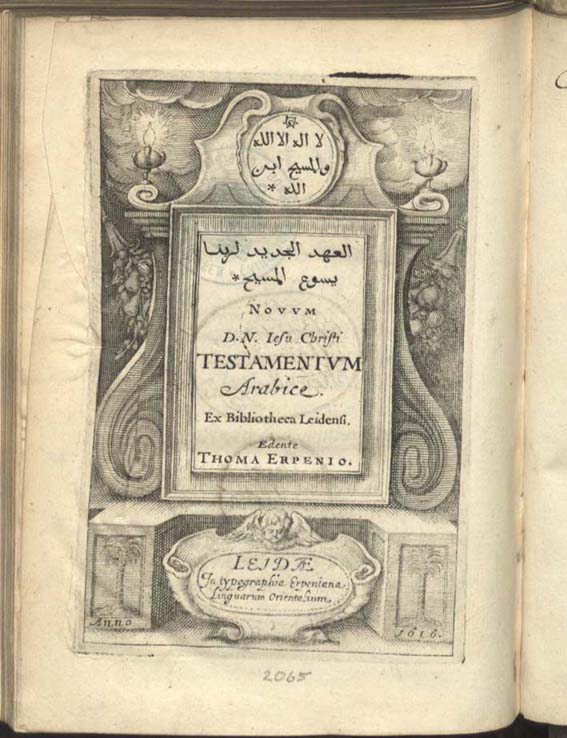 لا اله الا الله
والمسيح ابن
الله *
العهد الجديد لربنا
يسوع المسيح *
NOVVM
D. N. Iesu Christi
TESTAMENTVM
Arabice.
Ex Bibliotheca Leidensi.
Edente
THOMA ERPENIO.
LEIDÆ
In typographia Erpeniana
Linguarum Orientalium.
Anno 1616.
2065